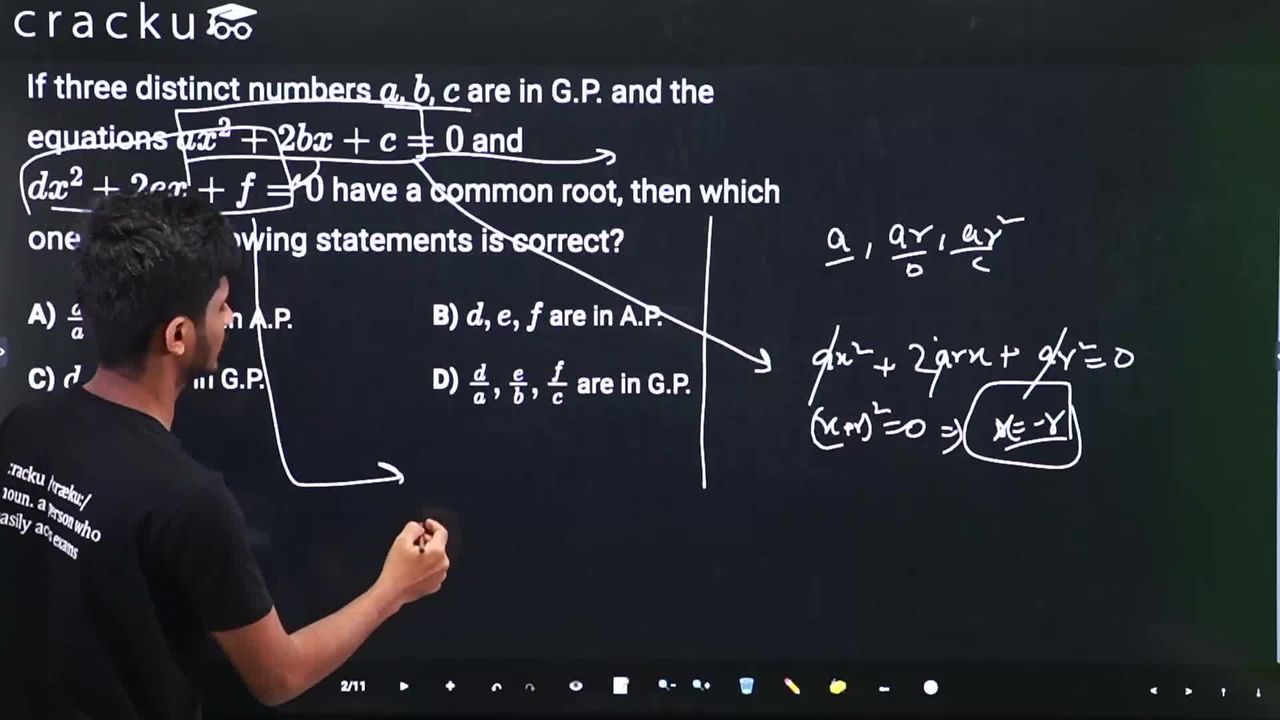 cracku
If three distinct numbers a, b, c are in G.P. and the
equations ax² + 2bx + c = 0 and
dx² + 2ex + f = 0 have a common root, then which
one wing statements is correct?
A) a n A.P.
B) d, e, f are in A.P.
C) d in G.P.
D) d/a, e/b, f/c are in G.P.
a, ar, ar²
b c
ax² + 2arx + ar² = 0
(x+r)² = 0 ⇒ x = -r
cracku /kræku:/
noun. a person who
easily aces exams
2/11